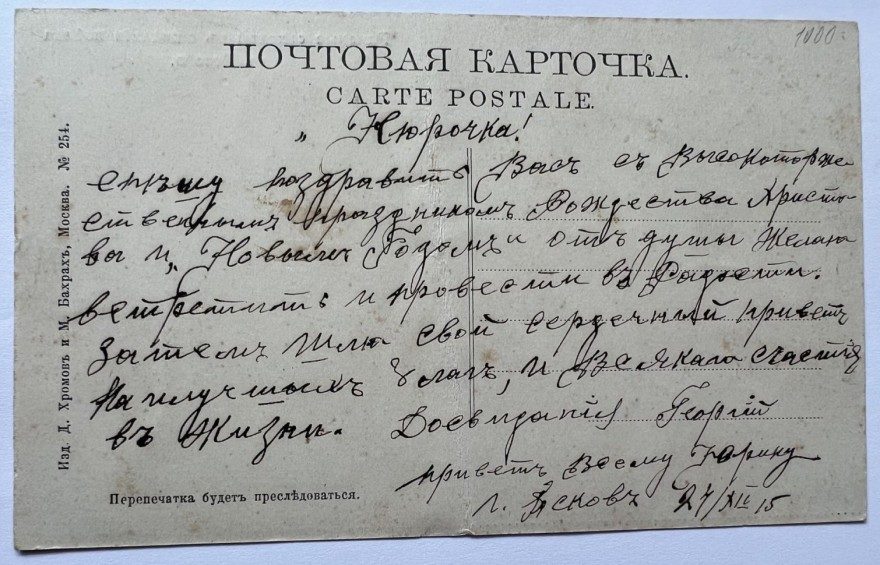 1000
ПОЧТОВАЯ КАРТОЧКА.
CARTE POSTALE.
„ Нюрочка!
спѣшу поздравить Васъ съ Высокоторже
ственнымъ праздникомъ Рождества Христо
ва и „ Новымъ Годомъ и отъ души Желаю
встретить и провести въ Радости.
Затемъ шлю свой сердечный приветъ
Наилучшихъ благъ, и Всякаго счастія
въ Жизни. Досвиданія Георгій
приветъ Всему
г. Псковъ 27/XII 15
Перепечатка будетъ преслѣдоваться.
Изд. Д. Хромовъ и М. Бахрахъ, Москва. № 254.